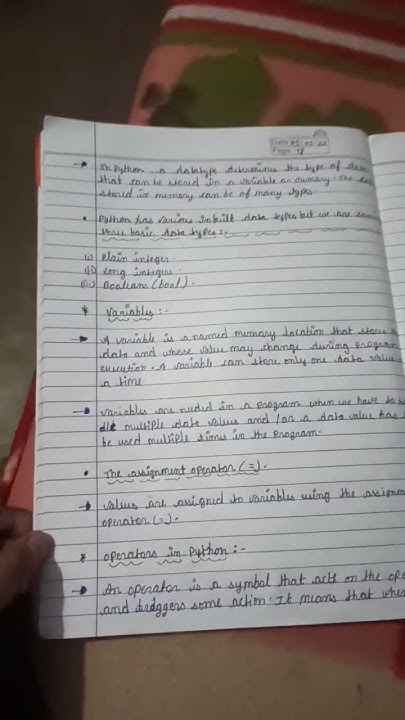 Page
→ In Python, a datatype determines the type of data
that can be stored in a variable or memory. The
stored in memory can be of many types.
• Python has various Inbuilt data types but we are
three basic data types:-
(i) Plain integer.
(ii) Long integer.
(iii) Booleans (bool).
* Variables:-
→ A variable is a named memory location that store
data and whose value may change during program
execution. A variable can store only one data value
a time
→ Variables are needed in a program when we have to
multiple data values and /or a data value has
be used multiple times in the program.
• The assignment operator (=).
→ values are assigned to variables using the assignm
operator (=).
* Operators in Python:-
→ An operator is a symbol that acts on the ope
and triggers some action. It means that when